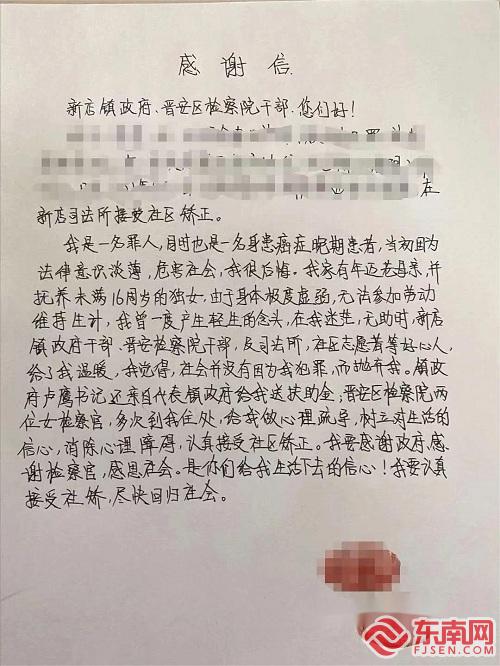 感谢信
新店镇政府、晋安区检察院干部、您们好!
在
新店司法所接受社区矫正。
我是一名罪人,目时也是一名身患癌症晚期患者,当初因为
法律意识淡薄,危害社会,我很后悔。我家有年迈老母亲,并
抚养未满16周岁的独女,由于身体极度虚弱,无法参加劳动
维持生计,我曾一度产生轻生的念头,在我迷茫,无助时,新店
镇政府干部、晋安检察院干部,及司法所,社区志愿者等好心人,
给了我温暖,我觉得,社会并没有因为我犯罪,而抛弃我。镇政
府卢鹰书记还亲自代表镇政府给我送扶助金;晋安区检察院两
位女检察官,多次到我住处,给我做心理疏导,树立对生活的
信心,消除心理障碍,认真接受社区矫正。我要感谢政府,感
谢检察官,感恩社会。是你们给我生活下去的信心!我要认真
接受社矫,尽快回归社会。
东南网
FJSEN.COM